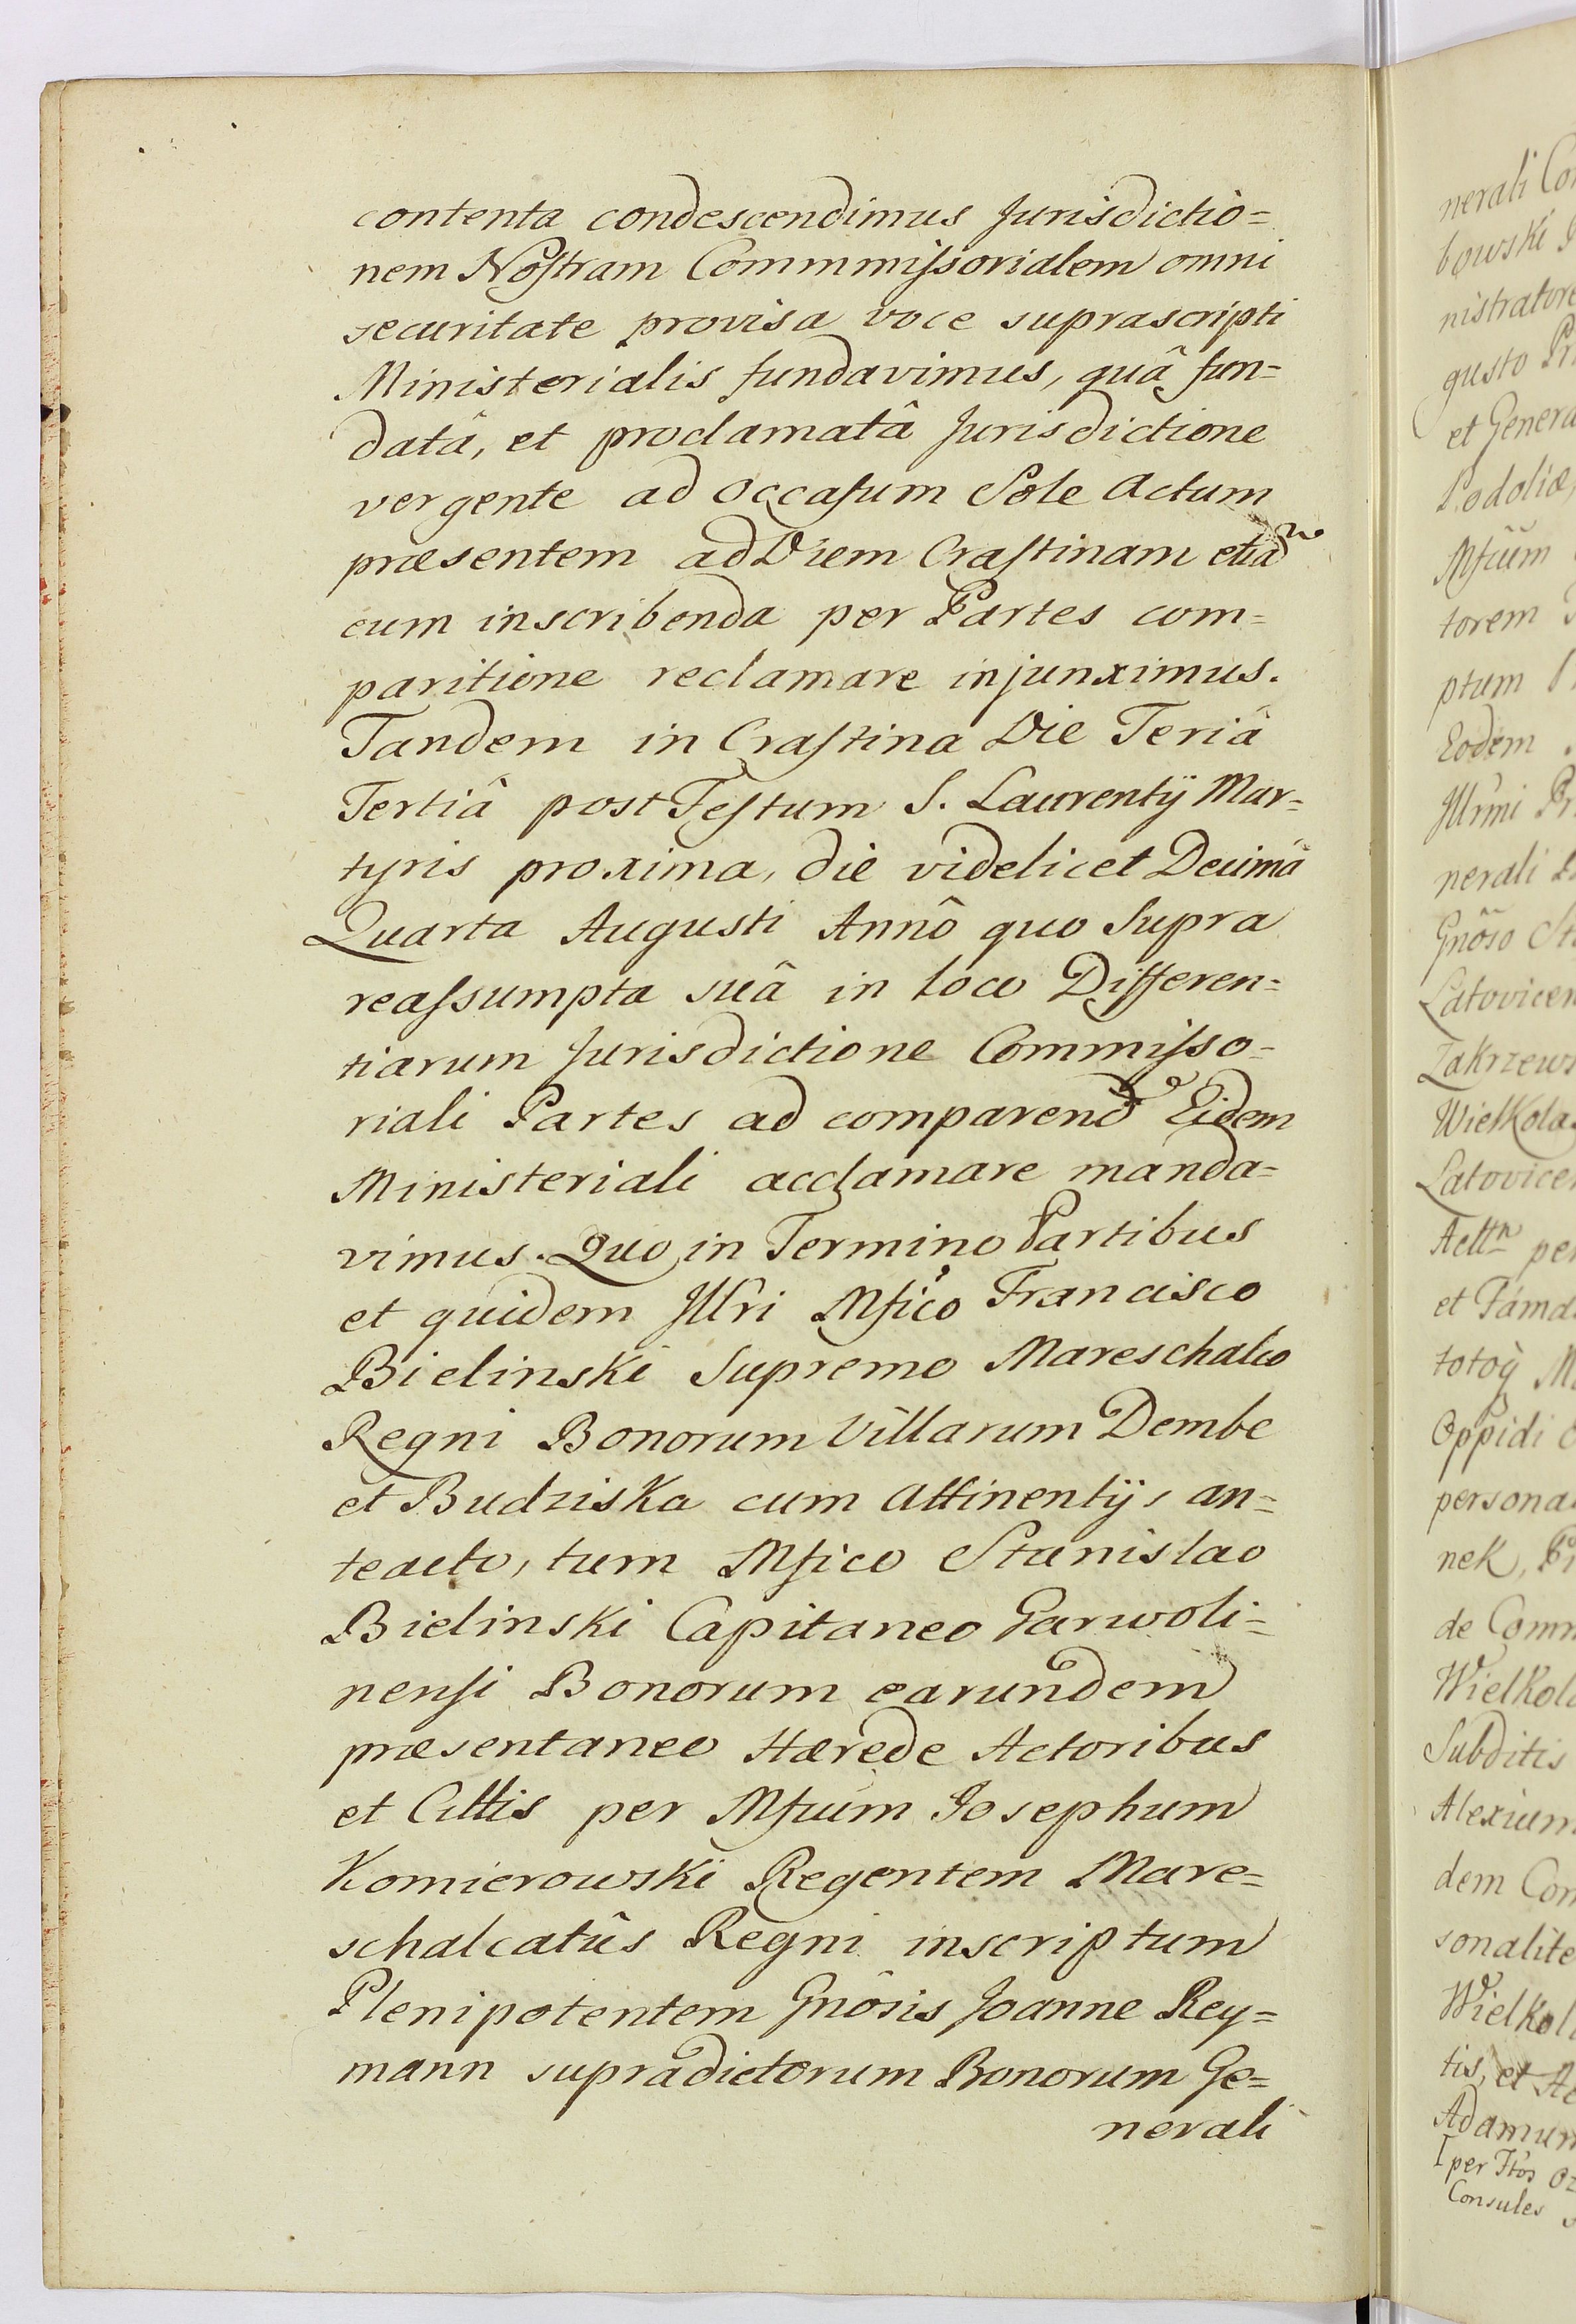 contenta condescendimus Jurisdictio=
nem Nostram Commmissorialem omni
securitate provisa voce suprascripti
Ministerialis fundavimus, quâ fun=
datâ, et proclamatâ Jurisdictione
vergente ad occasum Sole Actum
præsentem ad Diem Crastinam etiam
cum inscribenda per Partes com=
paritione reclamare injunximus.
Tandem in Crastina Die Feriâ
Tertiâ post Festum S. Laurentÿ Mar=
tyris proxima, die videlicet Decimâ
Quarta Augusti Annô quo Supra
reassumpta suâ in loco Differen=
tiarum Jurisdictione Commisso=
riali Partes ad comparend Eidem
Ministeriali acclamare manda=
vimus. Quo in Termino Partibus
et quidem Jllri Mfico Francisco
Bielinski Supremo Mareschalco
Regni Bonorum Villarum Dembe
et Budziska cum Attinentÿs an=
teacto, tum Mfico Stanislao
Bielinski Capitaneo Garwoli=
nensi Bonorum earundem
præsentaneo Hærede Actoribus
et Cittis per Mficum Josephum
Komierowski Regentem Mare=
schalcatûs Regni inscriptum
Plenipotentem Gnôsis Joanne Rey=
mann supradictorum Bonorum Ge=
nerali
nerali
bowski
nistratore
gusto
et Genera
Podoliæ,
Mficum
torem
ptum
Eodem
Jllrmi
nerali
Gnôso
Latovicen
Zakrzews
Wielkola
Latovice
per
et
Oppidi
persona
nek,
de Comm
Wielkol
Subditis
Alexium
dem Com
sonalite
Wielkol
tis, et
Adamum
per
Consules